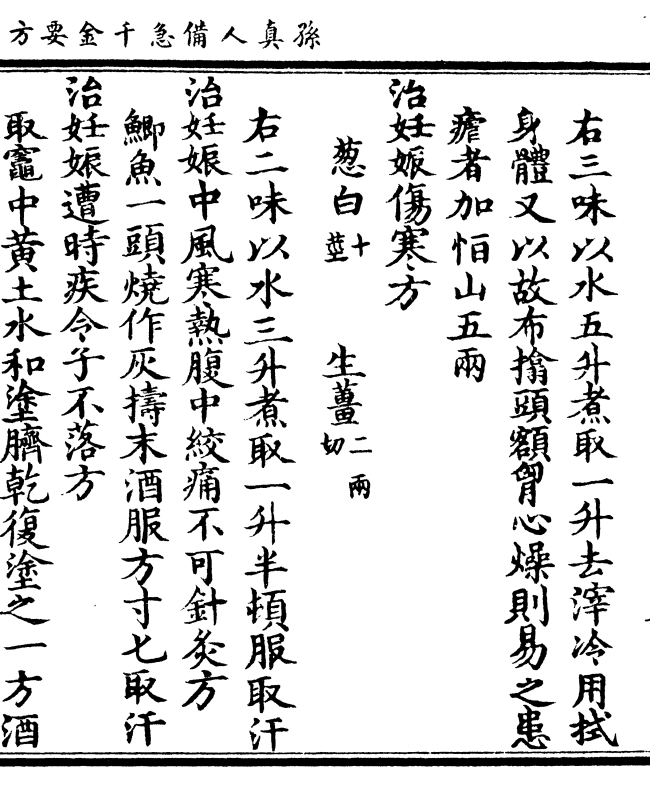 孫真人備急千金要方
右三味以水五升煮取一升去滓冷用拭
身體又以故布搨頭額胷心燥則易之患
瘧者加恒山五兩
治妊娠傷寒方
葱白十莖 生薑二兩切
右二味以水三升煮取一升半頓服取汗
治妊娠中風寒熱腹中絞痛不可針灸方
鯽魚一頭燒作灰擣末酒服方寸匕取汗
治妊娠遭時疾令子不落方
取竈中黃土水和塗臍乾復塗之一方酒